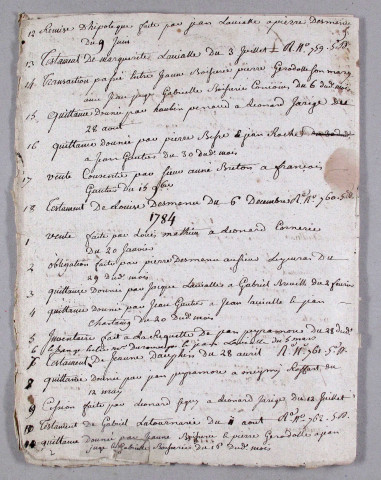 12 Remise D'hipoteque faite par jean Lavialle a pierre Desmome
du 9 juin
13 Testament de marguerite Lavialle du 3 juillet R. N° 759. 5e. D.
14 Transaction passée entre Jeanne Boisserie pierre Geraudolle son mary
avec Jean Juge Gabrielle Boisserie Conious du 6 dud. mois
15 quittance donnée par haulin a Léonard Jarige du
28 aout
16 quittance donnée par pierre Besse & jean Roche
a jean Gautes du 30 dud. mois
17 vente Consentie par feue anne Breton a françois
Gautes du 15 9bre
18 Testament De Louise Desmome du 6 Decembre R. N° 760. 5e. D.
1784
1 vente faite par Louis mathieu a Léonard Cornerie
Du 20 Janvier
2 obligation faite par pierre Desmome au sieur Du
29 dud. mois
3 quittance donnée par Jacque Lavialle a Gabriel Breuilh du 2 fevrier
4 quittance donnée par Jean Gautes a jean Lavialle & jean
Chastang du 20 Dud. mois
5 Inventaire fait a La Requette de jean peyramore du 28 dud.
6 Echange entre & jean Lavialle du 5 mars
7 Testament de Jeanne Dauphin du 28 avril R. N° 761 5e. D.
8 quittance donnée par jean peyramore a Roffart du
12 may
9 Cession faite par Léonard a Léonard Jarige du 12 juillet
10 Testament de Gabriel Latournerie du 11 aout R. N° 762. 5e. D.
quittance donnée par Jeanne Boisserie & pierre Geraudolle a jean
Juge & Gabrielle Boisserie du 15 dud. mois